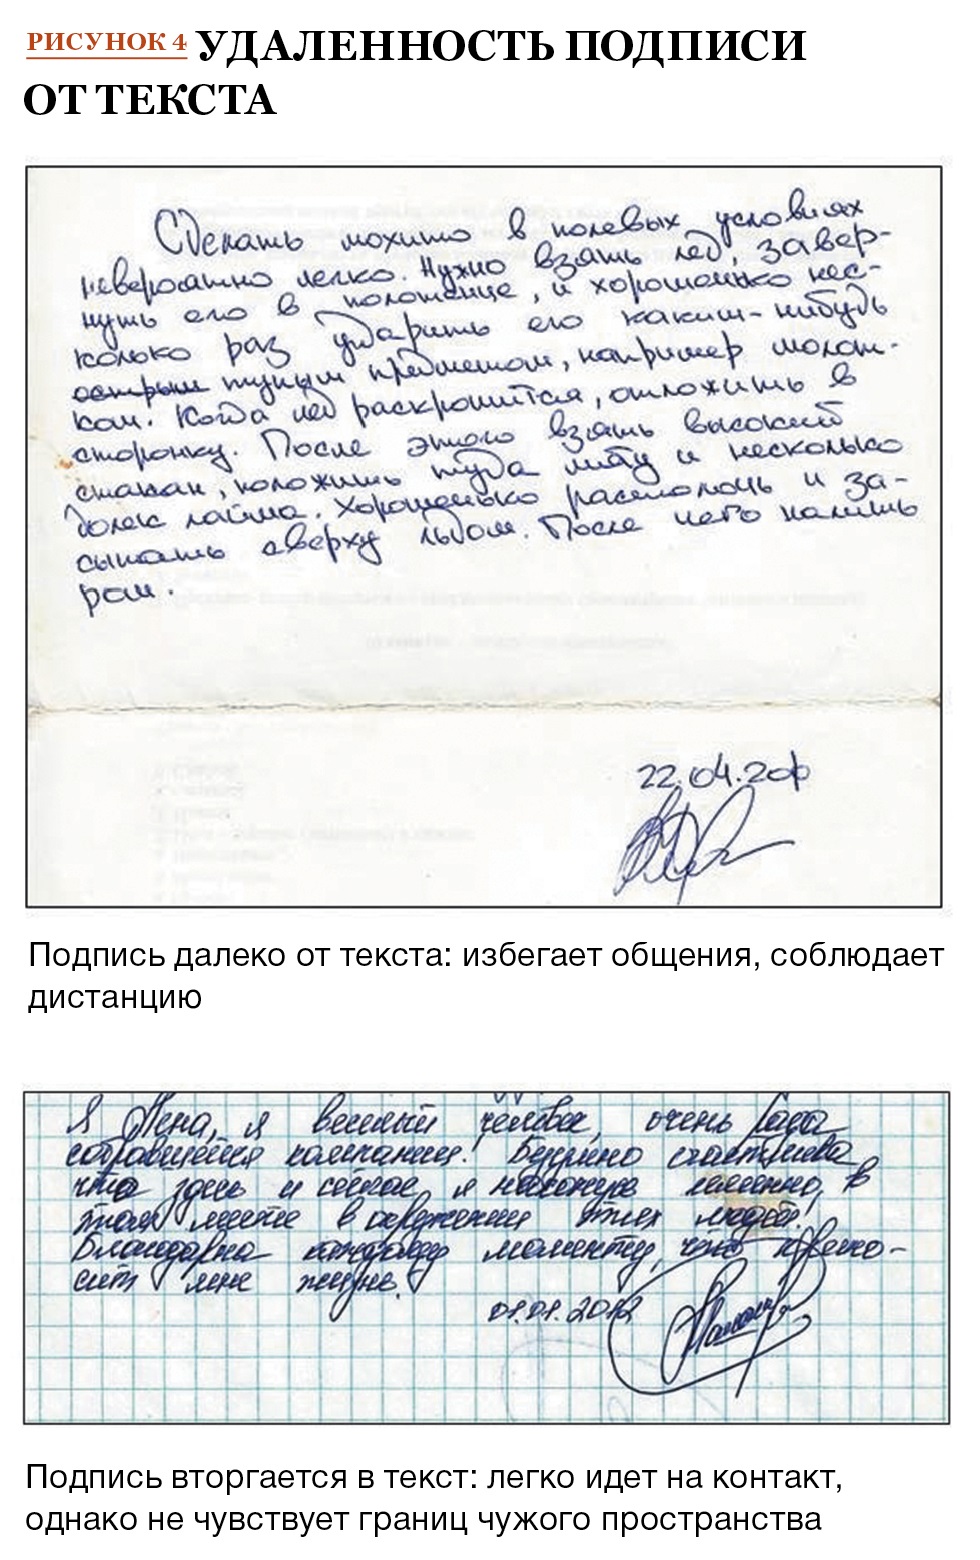 РИСУНОК 4 УДАЛЕННОСТЬ ПОДПИСИ
ОТ ТЕКСТА
Сделать мохито в полевых условиях
невероятно легко. Нужно взять лед, завер-
нуть его в полотенце, и хорошенько нес-
колько раз ударить его каким-нибудь
острым тупым предметом, например молот-
ком. Когда лед раскрошится, отложить в
сторонку. После этого взять высокий
стакан, положить туда мяту и несколько
долек лайма. Хорошенько растолочь и за-
сыпать сверху льдом. После чего налить
ром.
22.04.20
Подпись далеко от текста: избегает общения, соблюдает
дистанцию
Я Лена, я веселый человек, очень рада
собравшейся компании! Безумно счастлива
что здесь и сейчас я нахожусь именно в
этом месте в окружении этих людей.
Благодарна каждому моменту, что препо-
сит мне жизнь.
01.01.2012
Подпись вторгается в текст: легко идет на контакт,
однако не чувствует границ чужого пространства